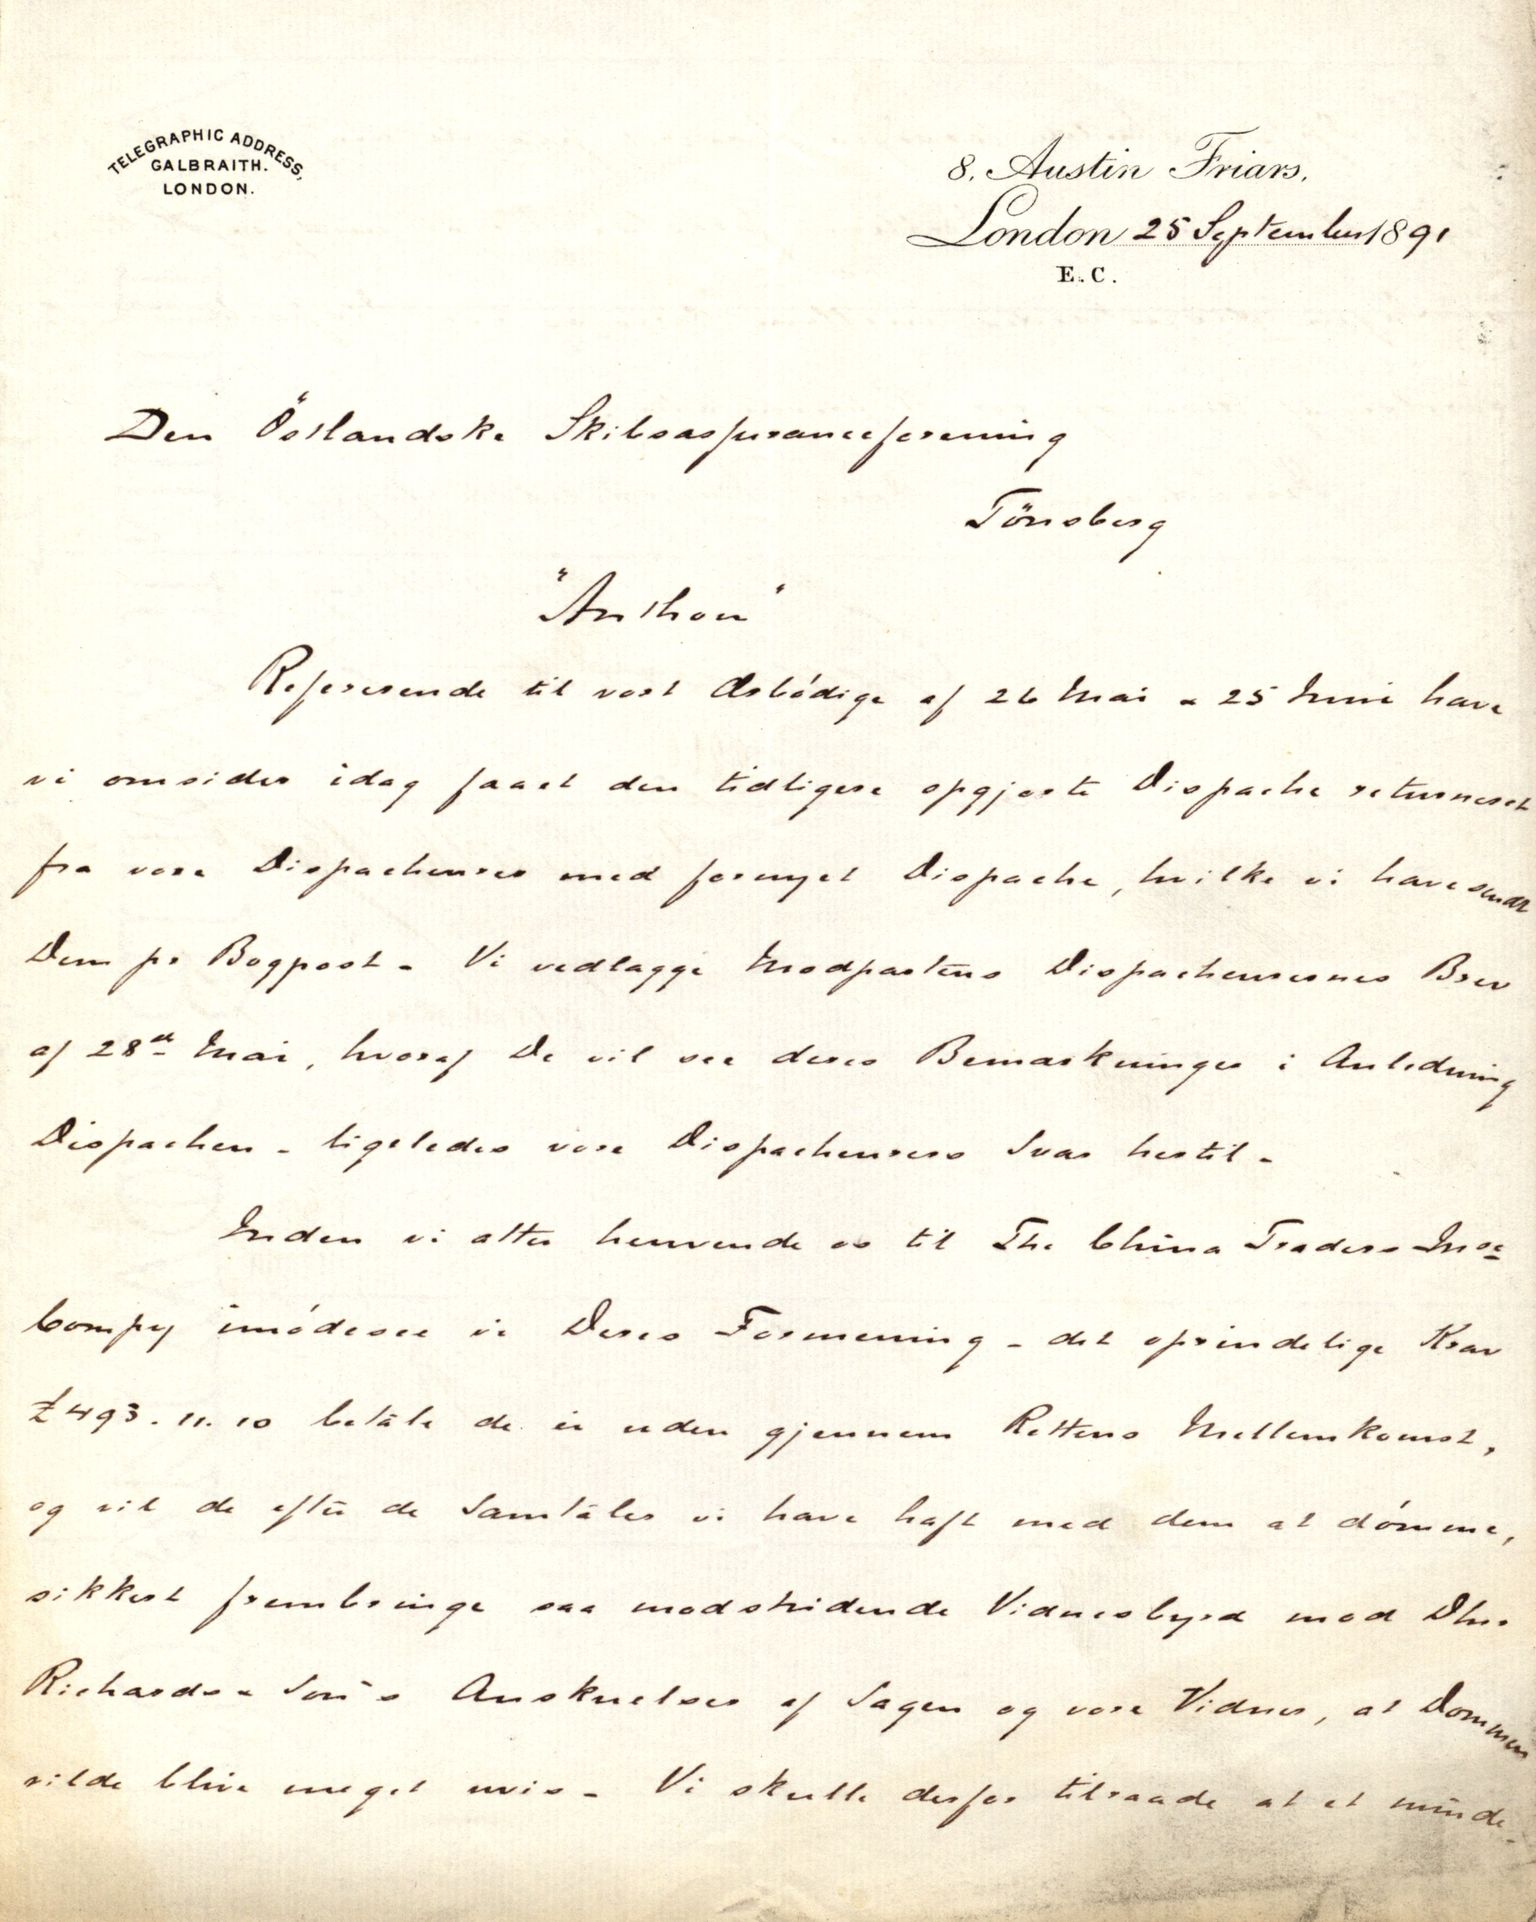 TELEGRAPHIC ADDRESS,
GALBRAITH.
LONDON.
8, Austin Friars,
London 25 September 1891
E.C.
Den Östlandske Skibsassuranceforening
Tönsberg
"Anthon"
Refererende til vort Ærbödige af 26 Mai & 25 Juni have
vi omsider idag faaet den tidligere opgjorte Dispache returneret
fra vore Dispacheurer med fornyet Dispache, hvilke vi have sendt
Dem pr Bogpost - Vi vedlægge Modpartens Dispacheurernes Brev
af 28de Mai, hvoraf De vil see deres Bemærkninger i Anledning
Dispachen - ligeledes vore Dispacheurers Svar hertil -
Inden vi atter henvende os til The China Traders Insce
Compy imödesee vi Deres Formening - det oprindelige Krav
£493.11.10 betale de ei uden gjennem Rettens Mellemkomst,
og vil de efter de Samtaler vi have haft med dem at dömme,
sikkert frembringe saa modstridende Vidnesbyrd mod Dhrr
Richards & Son's Anskuelser af Sagen og vore Vidner, at Dommen
vilde blive meget uvis - Vi skulle derfor tilraade at et minde-